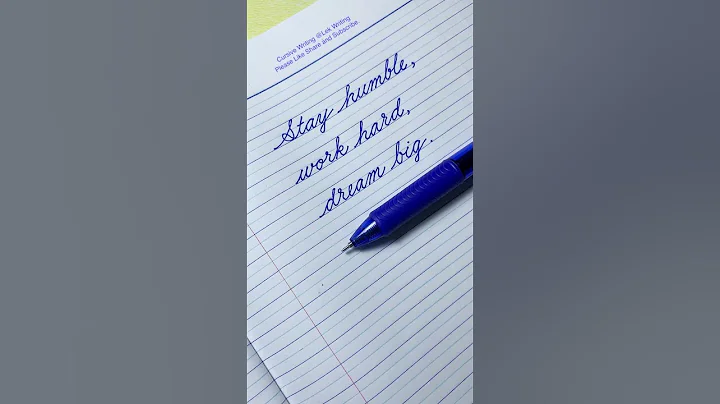 Cursive Writing @Lek Writing
Please Like Share and Subscribe.
Stay humble,
work hard,
dream big.